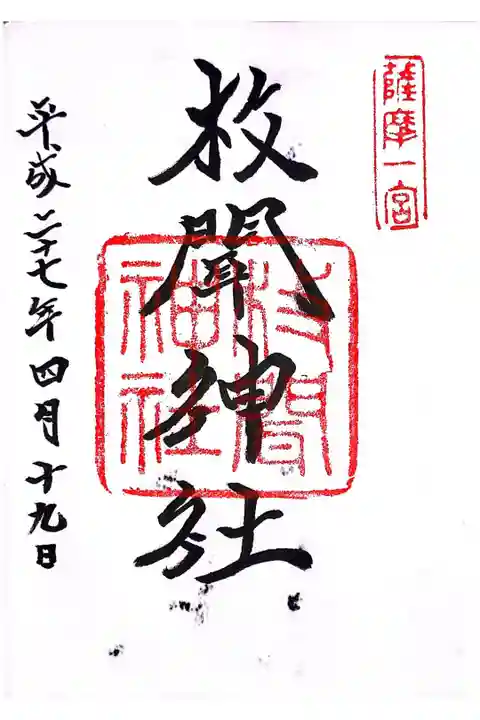 薩摩一宮
枚聞神社
枚聞
神社
平成二十七年四月十九日